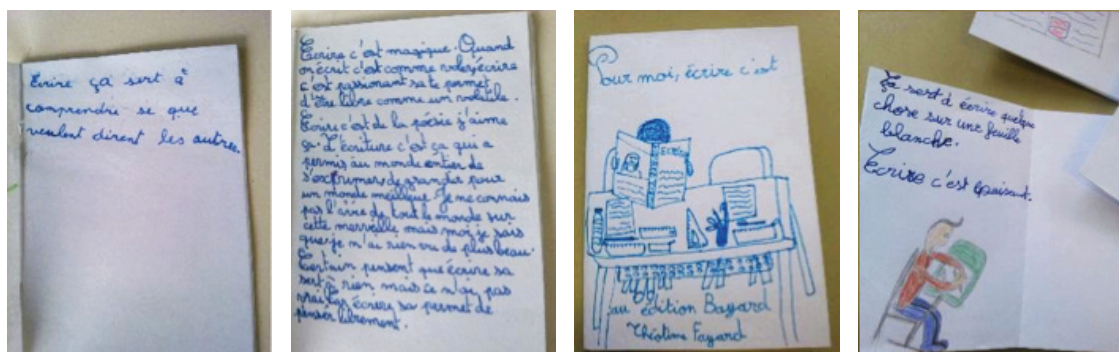 Ecrire ça sert à
comprendre se que
veulent dirent les autres.
Ecrire c'est magique. Quand
on écrit c'est comme voler, écrire
c'est passionant sa te permet
d'être libre comme un volatile.
Ecrire c'est de la poésie j'aime
ça. L'écriture c'est ça qui a
permis au monde entier de
s'exprimer, de grandir pour
un monde meilleur. Je ne connais
pas l'avie de tout le monde sur
cette merveille mais moi je sais
que je n'ai rien vu de plus beau.
Certain pensent que écrire sa
sert à rien mais ce n'ai pas
vrai car écrire sa permet de
penser librement.
Pour moi, écrire c'est
ECRIRE
au édition Bayard
Théotime Fayard
Ça sert à écrire quelque
chose sur une feuille
blanche.
Ecrire c'est épuisant.